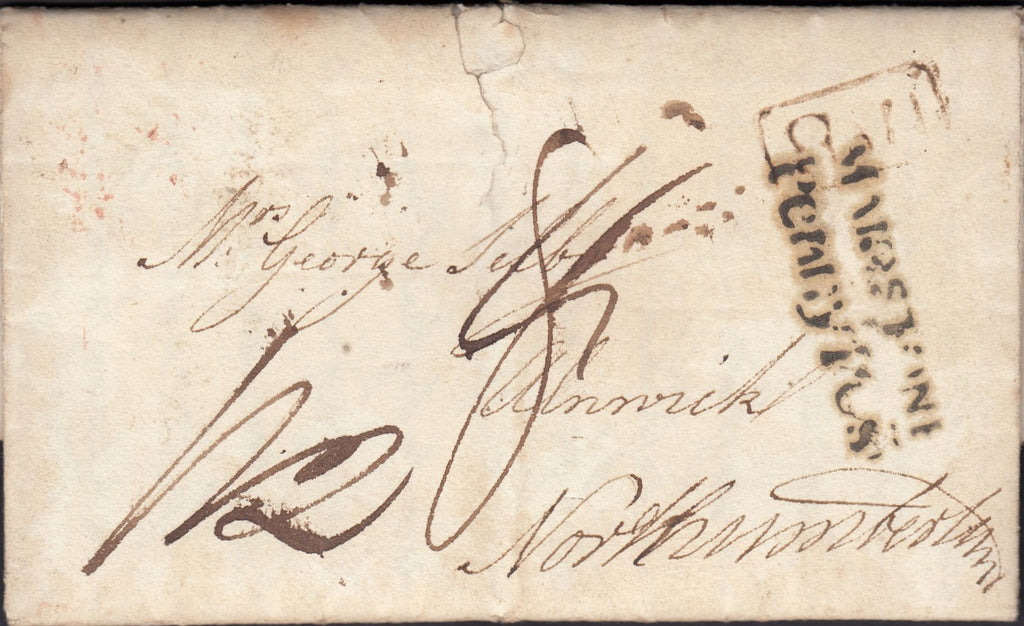 Mrs George Selby
Alnwick
Northumberland
1/2
8
Penny Post